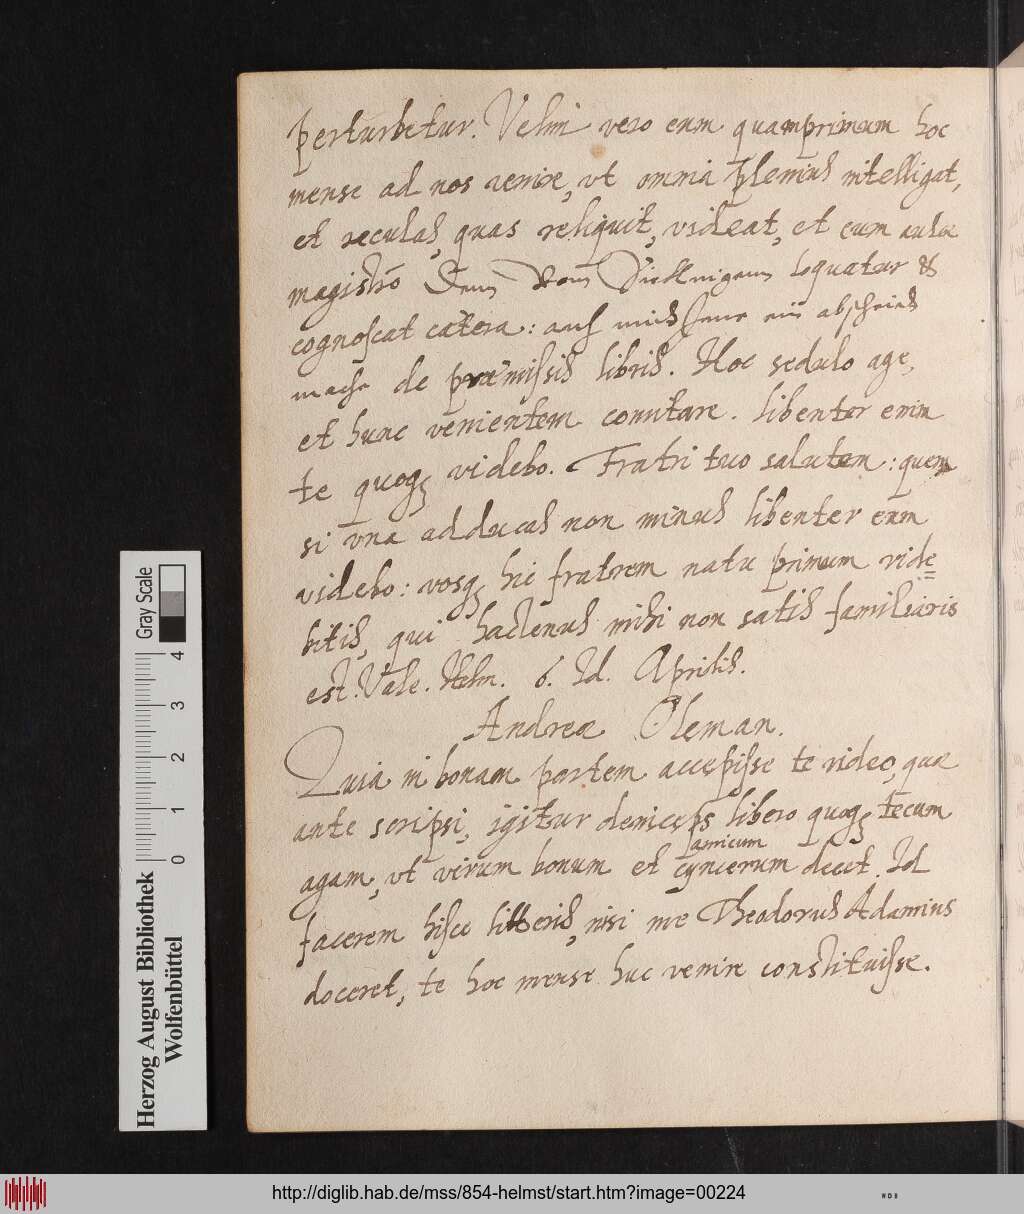 perturbetur. Velim vero eum quamprimum hoc
mense ad nos venire, vt omnia plenius intelligat,
et reculas, quas reliquit, videat, et cum aulæ
magistro Dem von loquatur &
cognoscat cætera: auch abscheid
mache de præmissis libris. Hoc sedulo age,
et hunc venientem comitare. libenter enim
te quoq; videbo. Fratri tuo salutem: quem
si vna adducas non minus libenter eum
videbo: vosq; hic fratrem natu primum vide=
bitis, qui hactenus mihi non satis familiaris
est. Vale. Helm. 6. Id. Aprilis.
Andreæ Cleman.
Quia in bonam partem accepisse te video, quæ
ante scripsi, igitur deniceps libero quoq; tecum
amicum
agam, vt virum bonum et syncerum decet. Id
facerem hisce litteris, nisi me Theodorus Adamius
doceret, te hoc mense huc venire constituisse.
Gray Scale
4
3
2
1
0
Herzog August Bibliothek
Wolfenbüttel
http://diglib.hab.de/mss/854-helmst/start.htm?image=00224